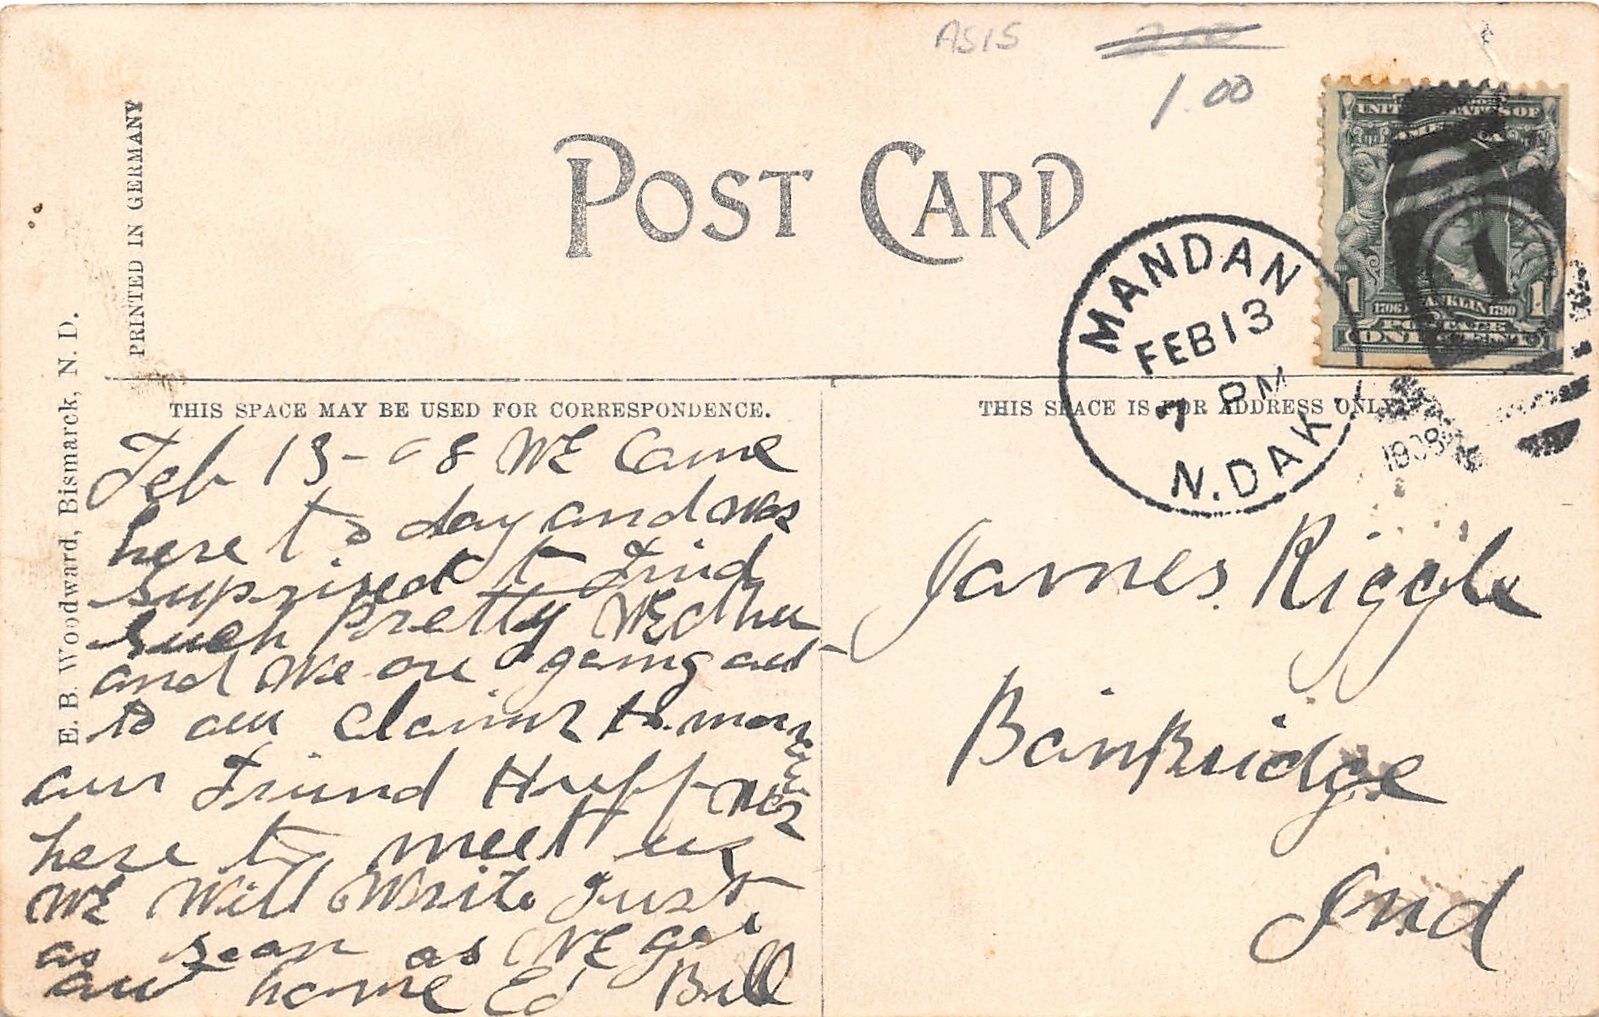 ASIS
1.00
PRINTED IN GERMANY
POST CARD
UNITED STATES OF
AMERICA
1 1706 FRANKLIN 1790 1
POSTAGE
ONE CENT
MANDAN
FEB 13
7 PM
N. DAK.
1908
1
E. B. Woodward, Bismarck, N. D.
THIS SPACE MAY BE USED FOR CORRESPONDENCE.
THIS SPACE IS FOR ADDRESS ONLY.
Feb 13-08 WE Came
here to day and was
suprised to Find
such Pretty WEather
and We are going out
to our Claims to morrow
our Friend Huff was
here to meet us
WE Will Write Just
as soon as WE get
our home Ed Bill
James Riggle
BainBridge
Ind